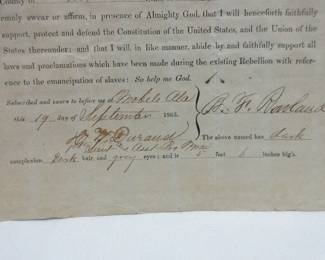 County of
emnly swear or affirm, in presence of Almighty God, that I will henceforth faithfully
support, protect and defend the Constitution of the United States, and the Union of
the States thereunder; and that I will in like manner, abide by and faithfully support all
laws and proclamations which have been made during the existing Rebellion with refer-
ence to the emancipation of slaves: So help me God.
Subscribed and sworn to before me at Mobile Ala
this 19 day of September 1865.
B. F. Rowland
The above named has dark
complexion dark hair, and gray eyes; and is 5 feet 6 inches high.